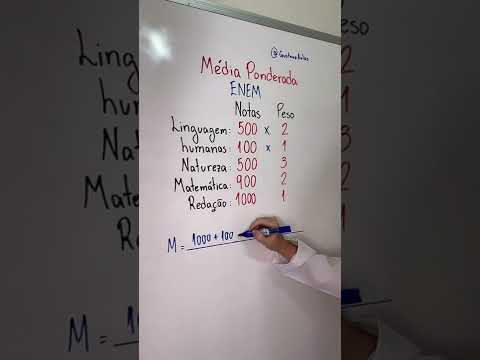 Média Ponderada
ENEM
Notas Peso
Linguagem: 500 x 2
humanas: 100 x 1
Natureza: 500 3
Matemática: 900 2
Redação: 1000 1
M = 1000 + 100